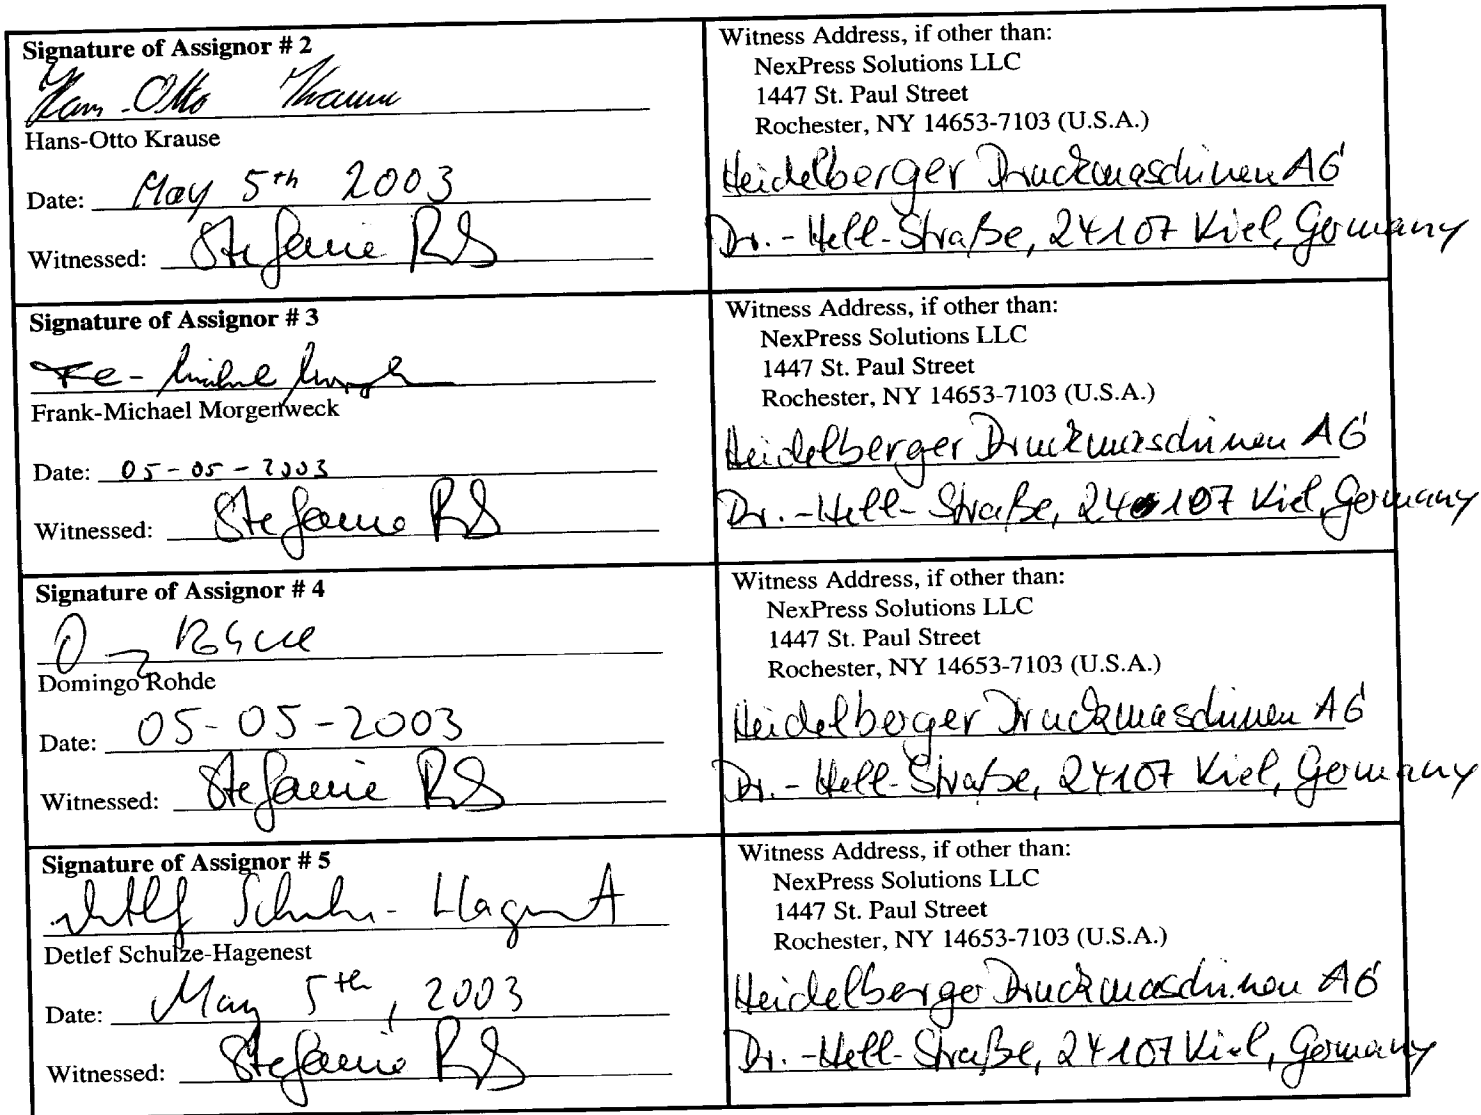 Signature of Assignor # 2
Hans-Otto Krause
Hans-Otto Krause
Date: May 5th 2003
Witnessed: Stefanie
Witness Address, if other than:
NexPress Solutions LLC
1447 St. Paul Street
Rochester, NY 14653-7103 (U.S.A.)
Heidelberger Druckmaschinen AG
Dr.-Hell-Straße, 24107 Kiel, Germany
Signature of Assignor # 3
Frank-Michael Morgenweck
Date: 05-05-2003
Witnessed: Stefanie
Witness Address, if other than:
NexPress Solutions LLC
1447 St. Paul Street
Rochester, NY 14653-7103 (U.S.A.)
Heidelberger Druckmaschinen AG
Dr.-Hell-Straße, 24107 Kiel, Germany
Signature of Assignor # 4
Rohde
Domingo Rohde
Date: 05-05-2003
Witnessed: Stefanie
Witness Address, if other than:
NexPress Solutions LLC
1447 St. Paul Street
Rochester, NY 14653-7103 (U.S.A.)
Heidelberger Druckmaschinen AG
Dr.-Hell-Straße, 24107 Kiel, Germany
Signature of Assignor # 5
Detlef Schulze-Hagenest
Detlef Schulze-Hagenest
Date: May 5th, 2003
Witnessed: Stefanie
Witness Address, if other than:
NexPress Solutions LLC
1447 St. Paul Street
Rochester, NY 14653-7103 (U.S.A.)
Heidelberger Druckmaschinen AG
Dr.-Hell-Straße, 24107 Kiel, Germany